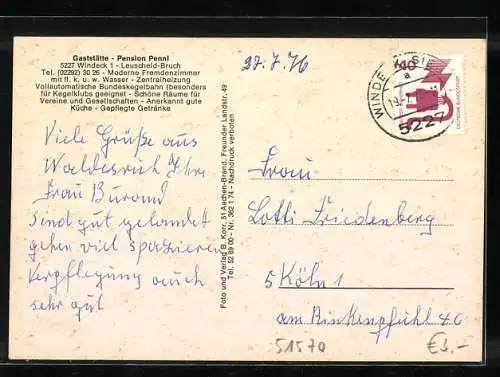 Gaststätte - Pension Pennl
5227 Windeck 1 - Leuscheld-Bruch
Tel. (02292) 30 26 - Moderne Fremdenzimmer
mit fl. k. u. w. Wasser - Zentralheizung
Vollautomatische Bundeskegelbahn (besonders
für Kegelklubs geeignet - Schöne Räume für
Vereine und Gesellschaften - Anerkannt gute
Küche - Gepflegte Getränke
27.7.76
WINDECK
a
5227
40
Viele Grüße aus
Ihre
Frau
Sind gut gelandet
gehen viel spazieren
Verpflegung auch
sehr gut
Foto und Verlag B. Korr, 51 Aachen-Brand, Freunder Landstr. 49
Tel. 52 89 00 - Nr. 362 1 74 - Nachdruck verboten
Frau
Lotti Friedenberg
5 Köln 1
am Rinkenpfuhl 46
51570
€3,-